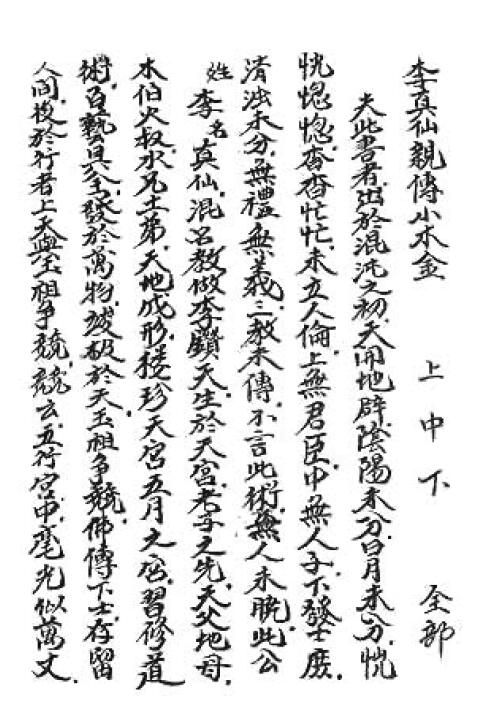 李真仙親傳小木金 上中下 全部
夫此書者出於混沌之初天開地辟陰陽未分日月未分恍
恍惚惚杳杳忙忙未立人倫上無君臣中無人子下發士庶
清浊未分無禮無義三教未傳不言此術無人未脫此公
姓李名真仙混名教做李鑽天生於天宮老子之先天父地母
木伯火叔水兄土弟天地成形 天宮五月之宮習修道
術百藝具全發於萬物 破於天玉祖争競佛傳下士存留
人间後於行者上天與玉祖争競競云五行宮中毫光似萬丈